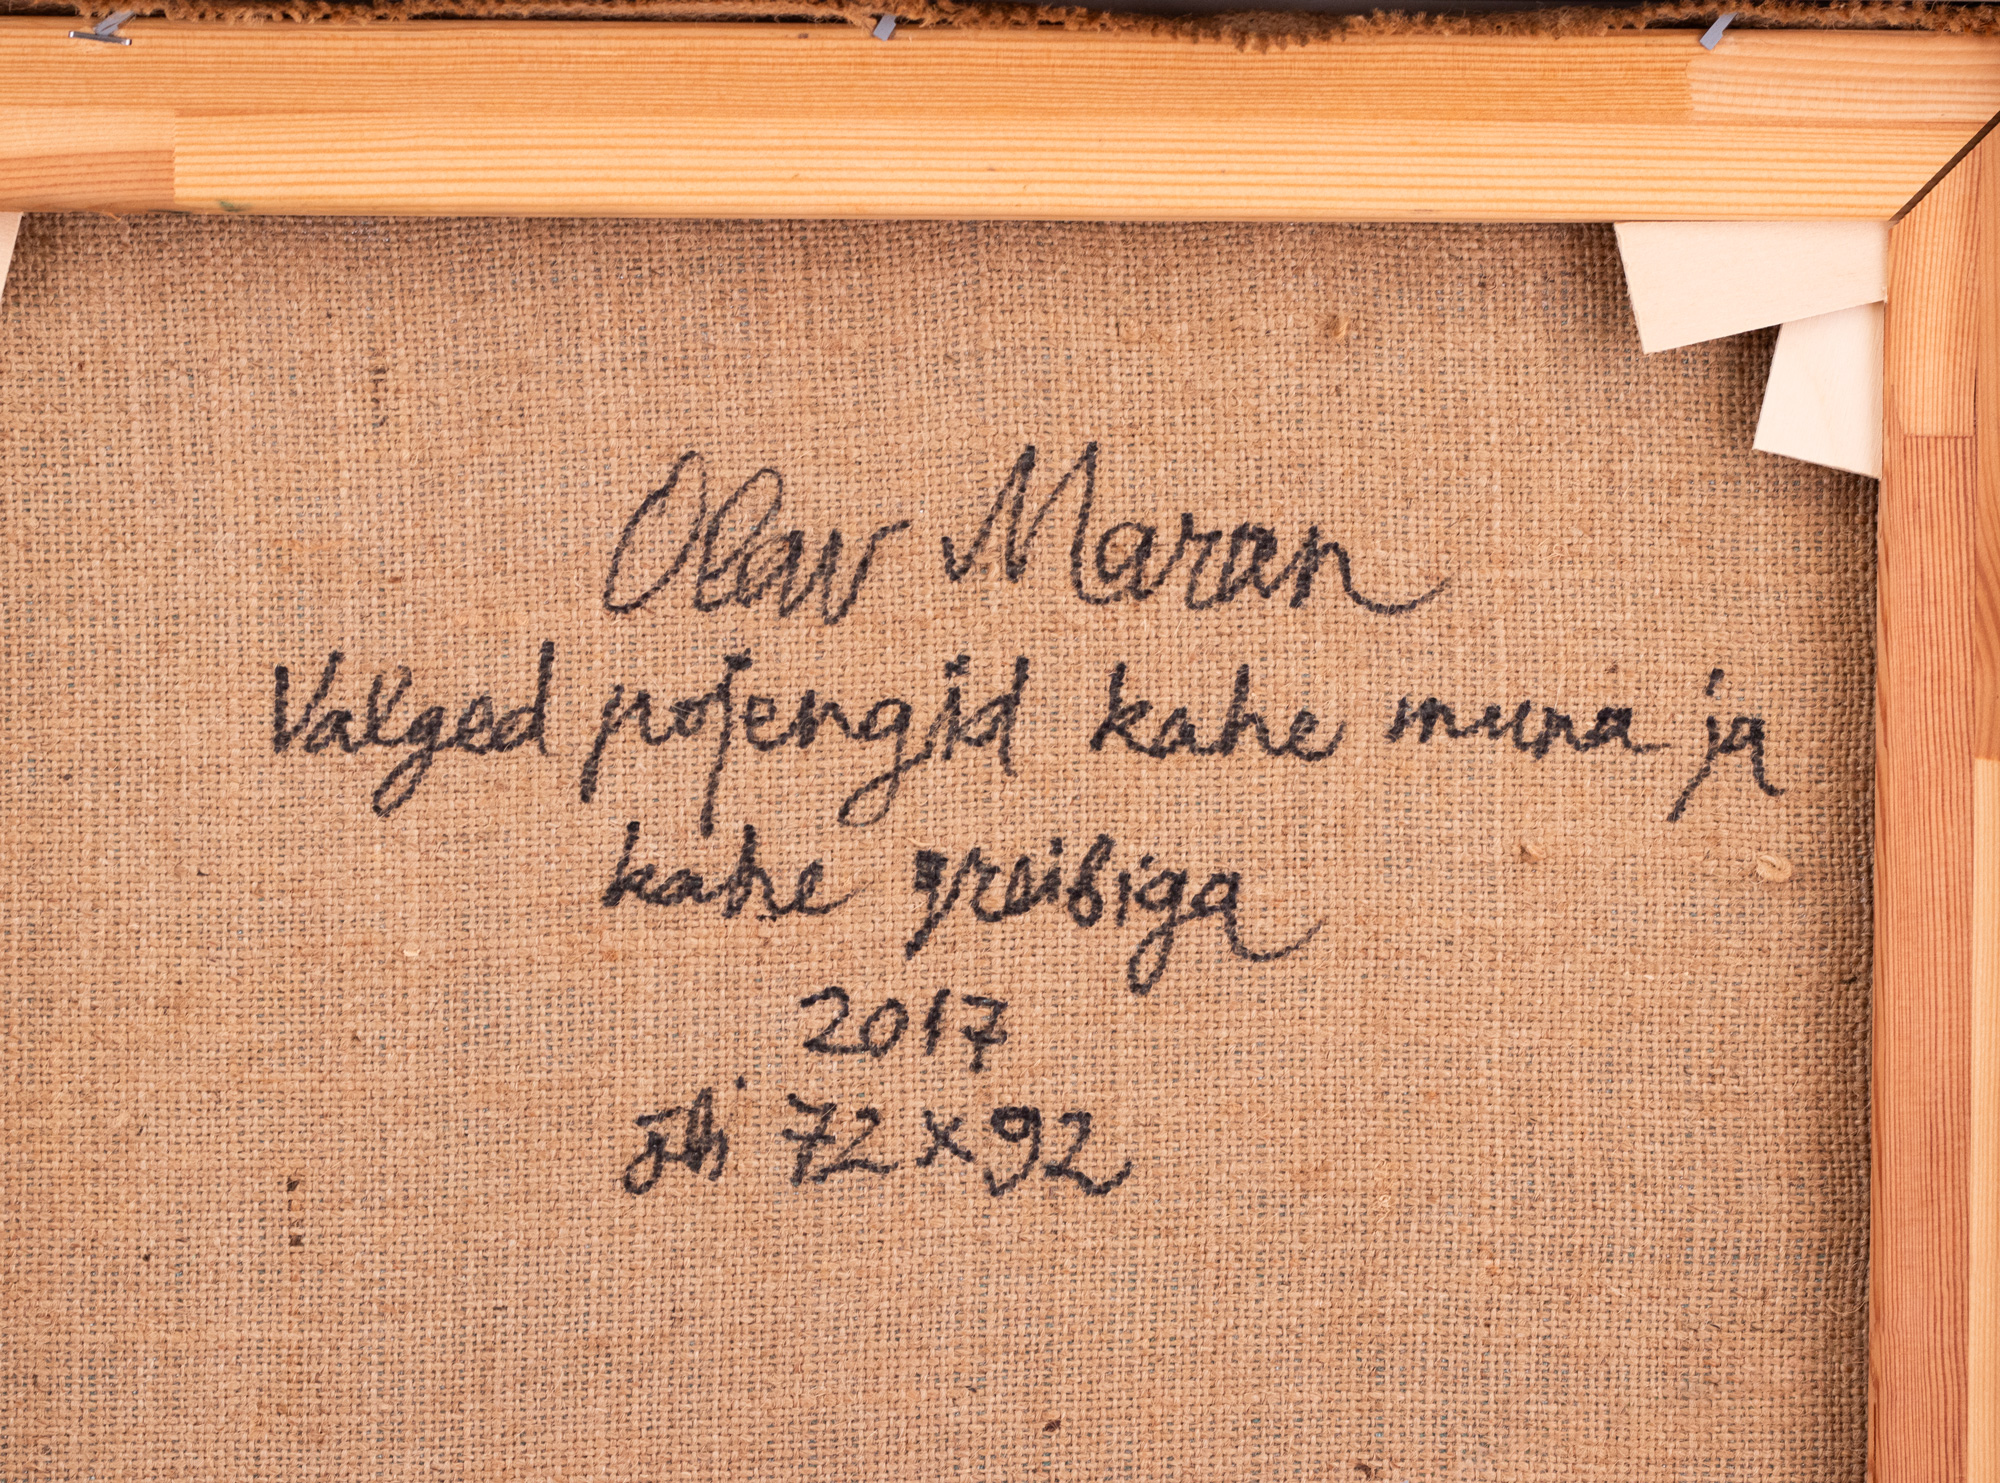 Olav Maran
Valged pojengid kahe muna ja
kahe greibiga
2017
õli 72 x 92